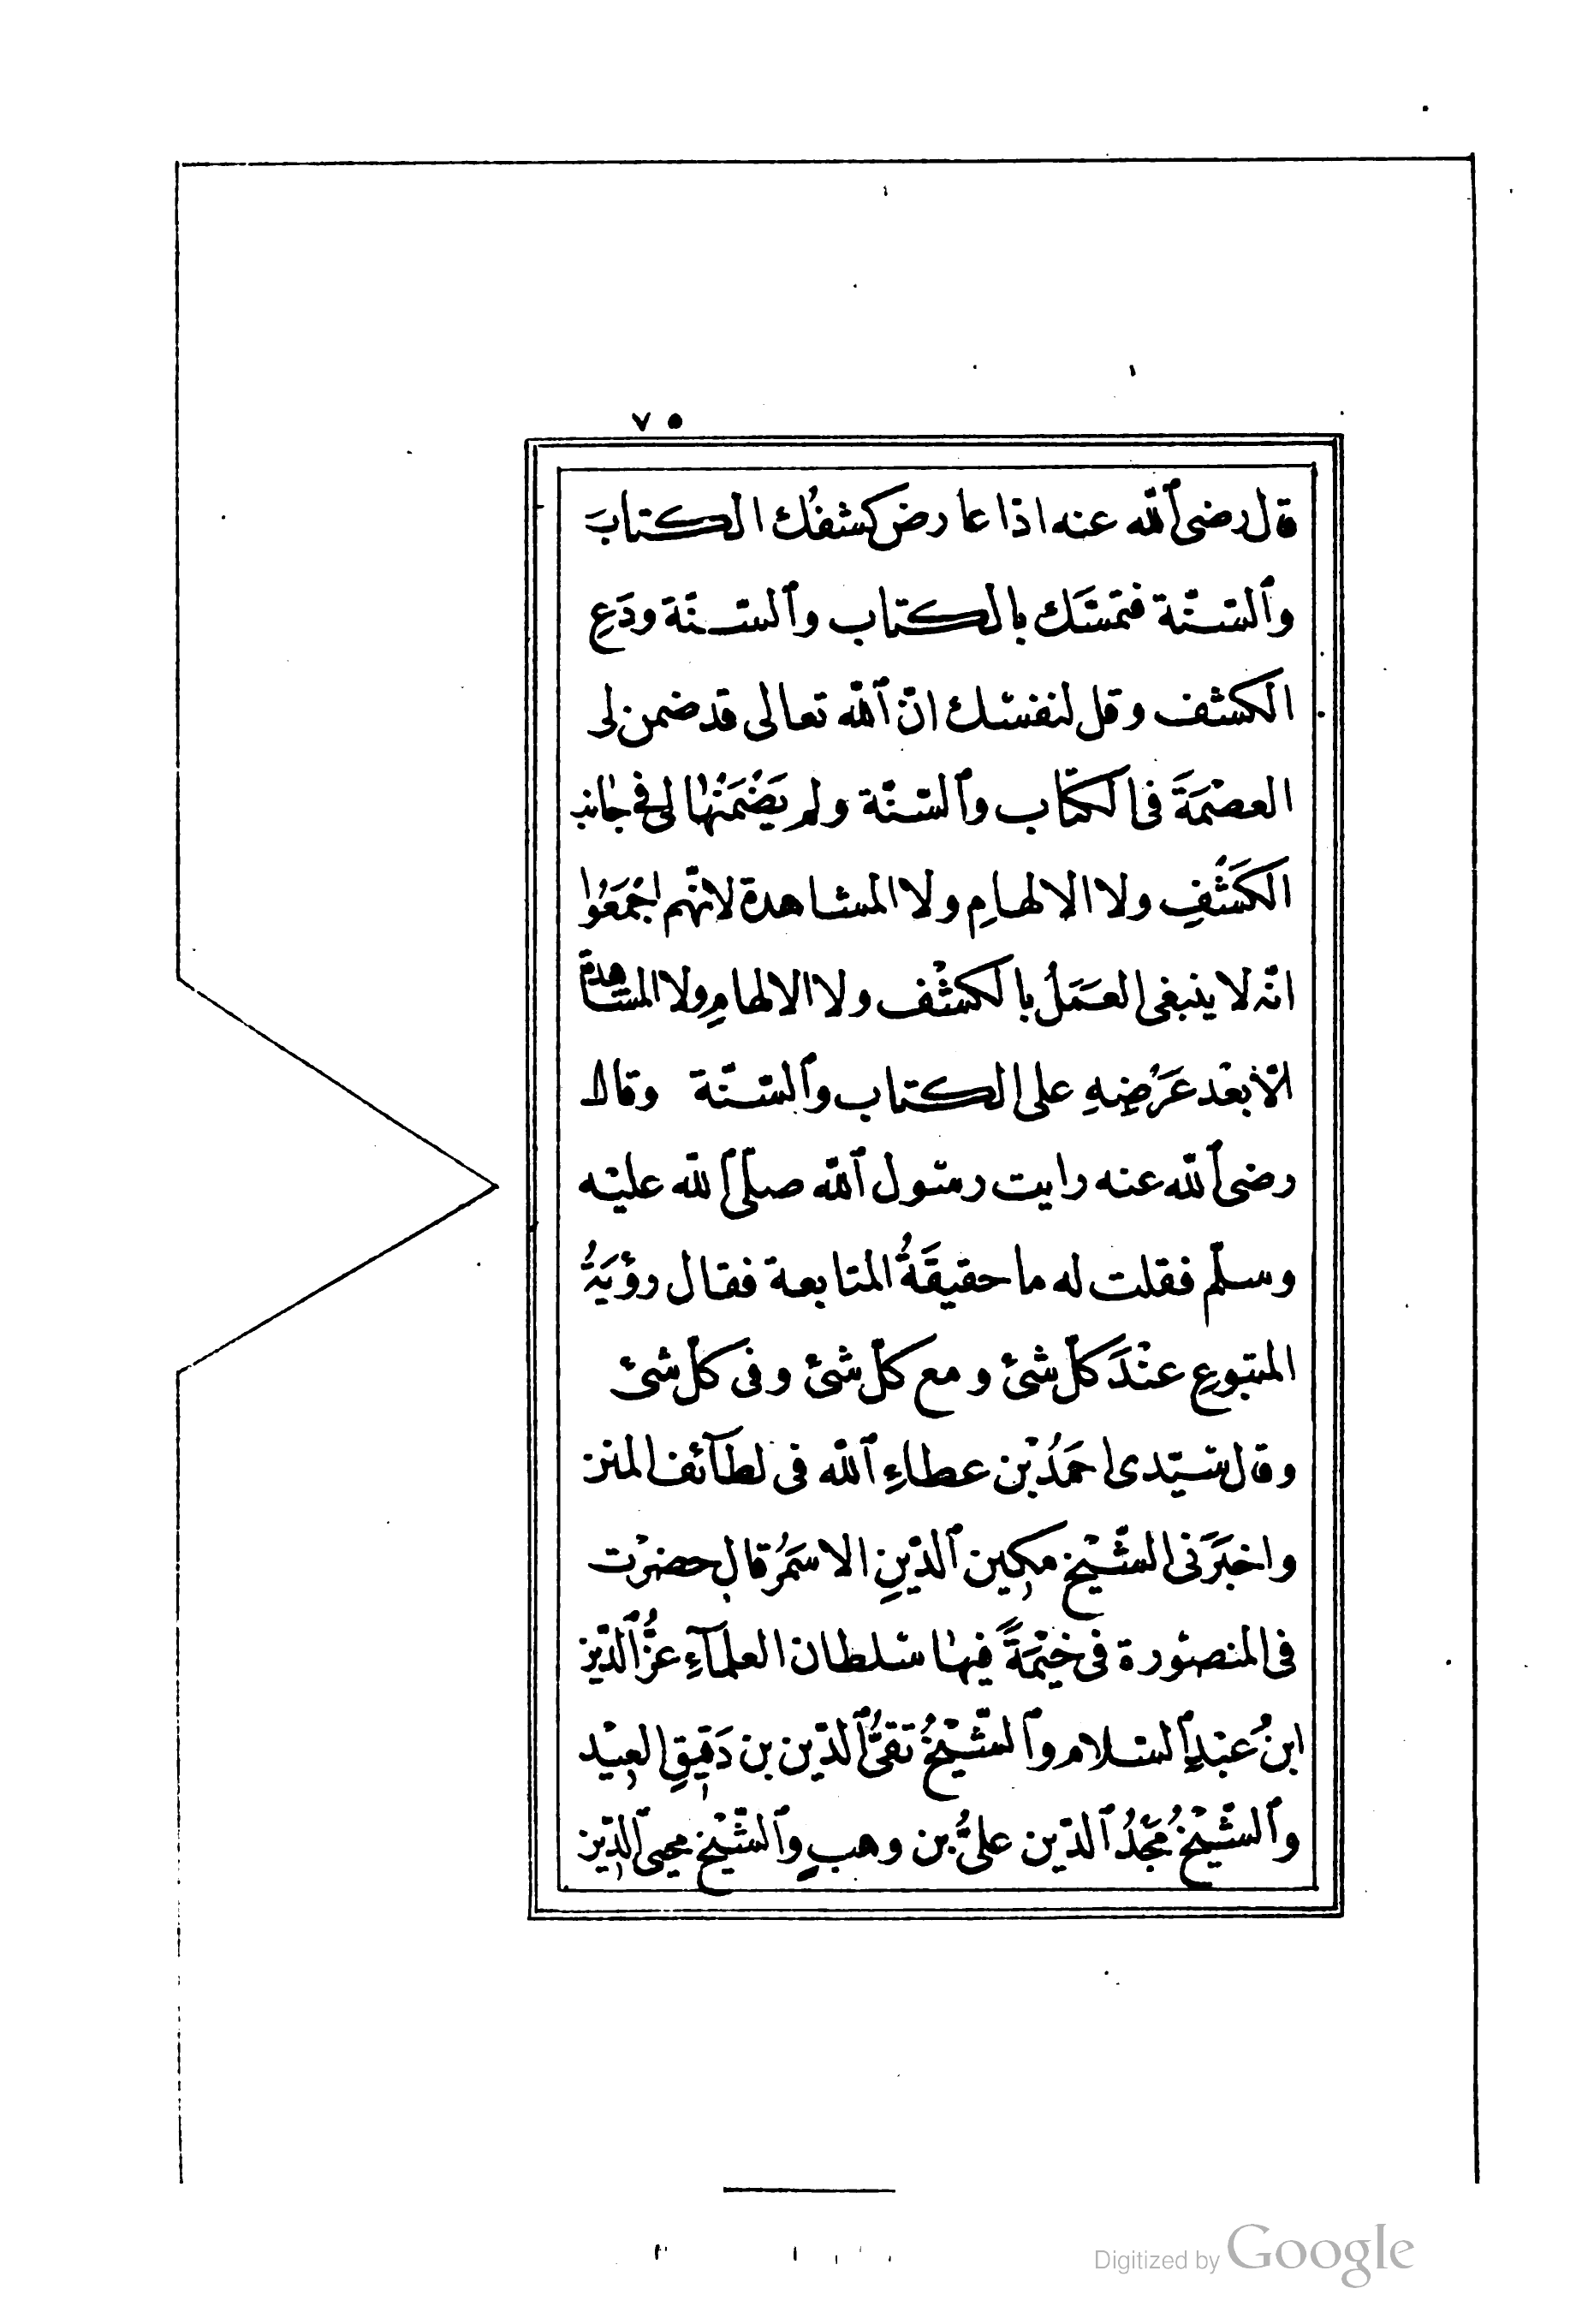 ٧٥
قال رضى ٱلله عنه اذا عارض كشفُك الكتابَ
وٱلسّنّة فتمسّك بالكتاب وٱلسّنّة ودَعِ
الكشف وقل لنفسك انّ ٱللّه تعالى قد ضمن لى
العصْمَةَ فى الكتاب وٱلسّنّة ولم يَضْمَنْها لى فى جانب
الكَشْفِ ولا الالهامِ ولا المشاهدة لانّهم اجْمَعُوا
انّه لا ينبغى العَمَلُ بالكشْف ولا الالهامِ ولا المشاهدة
الّا بعْد عَرْضِهِ على الكتاب وٱلسّنّة وقال
رضى ٱلله عنه رايت رسول ٱللّه صلّى ٱللّه عليْه
وسلّم فقلت له ما حقيقَةُ المتابعة فقال رؤْيَةُ
المتبوعِ عنْدَ كلّ شئ ومع كلّ شئ وفى كلّ شئ
وقال سيّدى احمَدُ بْن عطاءِ ٱللّه فى لطآئف المنن
واخبَرَنى الشّيْخ مكين ٱلدّينِ الاسمَرُ قال حضرْت
فى المنصورة فى خيْمَةً فيها سلطان العلمآءِ عزُّ ٱلدّين
ابنُ عبْدِ ٱلسّلام وٱلشّيْخُ تقىُّ ٱلدّين بن دَقيقِ العِيْد
وٱلشّيْخُ مجْدُ ٱلدّين علىُّ بن وهبٍ وٱلشّيْخ محيى ٱلدّين
Digitized by Google